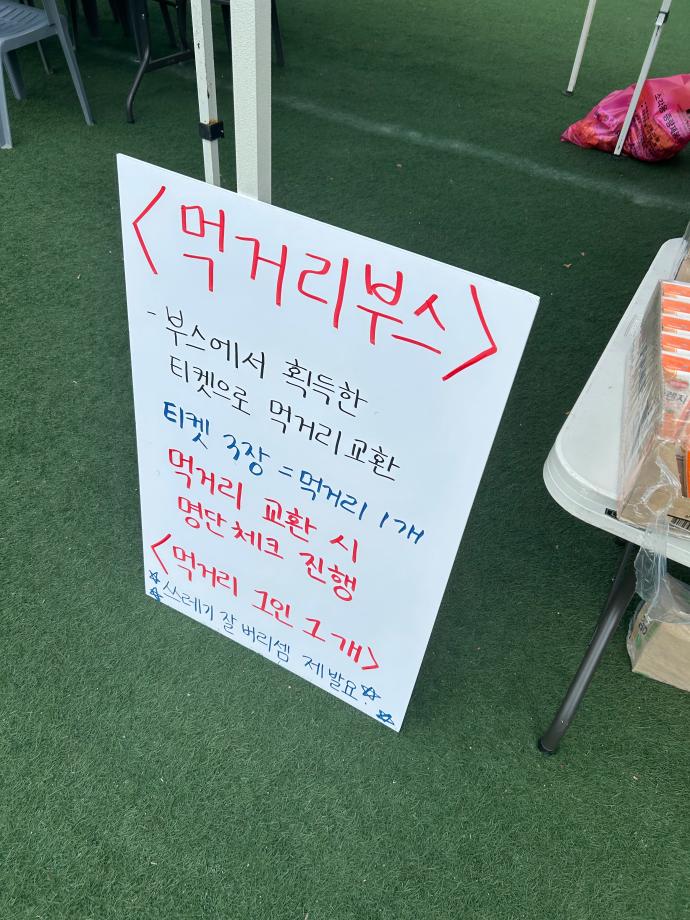 <먹거리부스>
- 부스에서 획득한
티켓으로 먹거리교환
티켓 3장 = 먹거리 1개
먹거리 교환 시
명단체크 진행
<먹거리 1인 1개>
☆쓰레기 잘 버리셈 제발요!☆
소각용